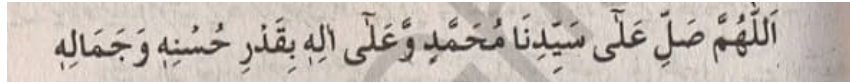 اَللّٰهُمَّ صَلِّ عَلٰى سَيِّدِنَا مُحَمَّدٍ وَّعَلٰٓى اٰلِهٖ بِقَدْرِ حُسْنِهٖ وَجَمَالِهٖ